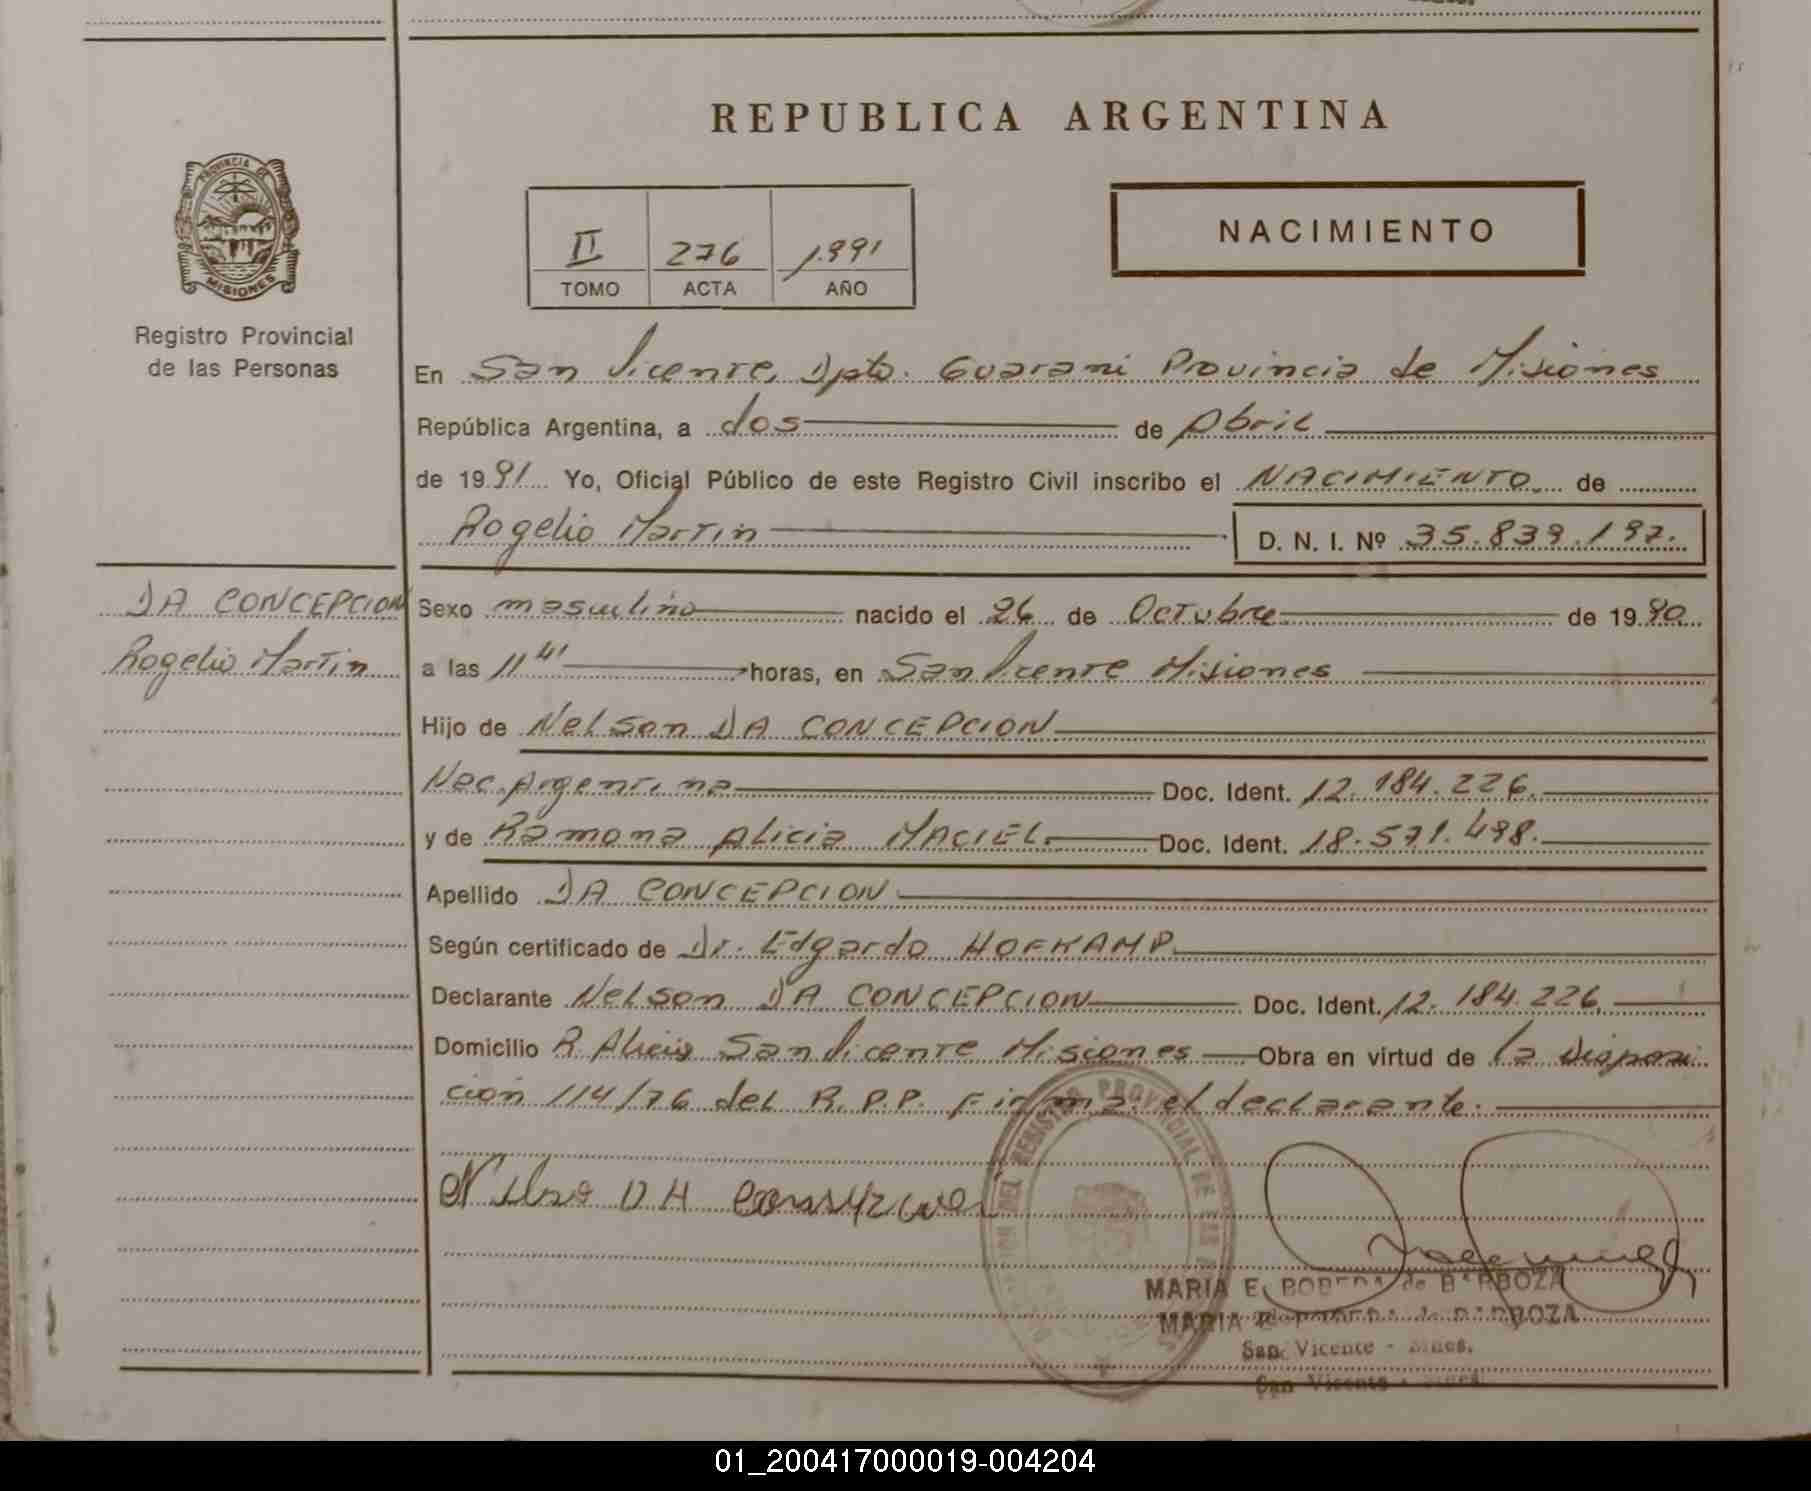 REPUBLICA ARGENTINA
PROVINCIA DE
MISIONES
Registro Provincial
de las Personas
II 276 1.991
TOMO ACTA AÑO
NACIMIENTO
En San Vicente, Dpto. Guarani Provincia de Misiones
República Argentina, a dos de Abril
de 1991 Yo, Oficial Público de este Registro Civil inscribo el NACIMIENTO de
Rogelio Martin D. N. I. Nº 35.839.197.
DA CONCEPCION
Rogelio Martin
Sexo masculino nacido el 26 de Octubre de 1990
a las 11 41' horas, en San Vicente Misiones
Hijo de Nelson DA CONCEPCION
Nac. Argentina Doc. Ident. 12.184.226.
y de Ramona Alicia MACIEL. Doc. Ident. 18.571.498.
Apellido DA CONCEPCION
Según certificado de Dr. Edgardo HOFKAMP
Declarante Nelson DA CONCEPCION Doc. Ident. 12.184.226
Domicilio R. Alicia San Vicente Misiones Obra en virtud de la Disposi
ción 114/76 del R.P.P. Firma el declarante.
REGISTRO PROVINCIAL DE LAS
MARIA E. BOBEDA de BARBOZA
MARIA E. BOBEDA de BARBOZA
San Vicente - Mnes.
San Vicente - Mnes.
01_200417000019-004204